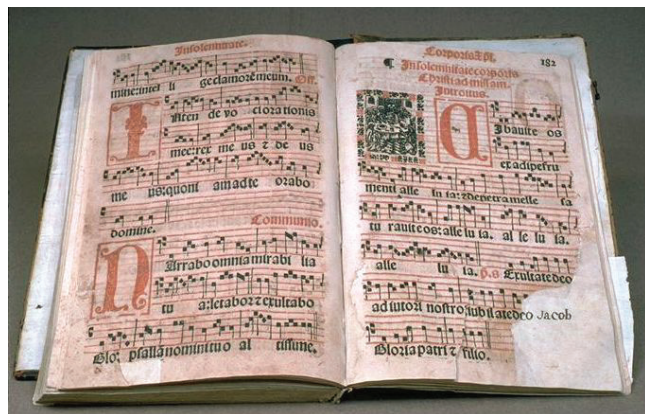 In solennitate.
mine:intel li ge clamorẽ meum. Off.
INten de vo ci orationis
mee:rex me us ⁊ de us
me us:quoni am ad te orabo
domine. Communio.
NArrabo omnia mirabi lia
tu a:letabor ⁊ exultabo
psallã nomini tuo al tissime.
Corporis xp̃i. 182
¶ In solennitate corporis
Christi ad missam.
Introitus.
CIbauit e os
ex adipe fru
menti alle lu ia: ⁊ de petra melle sa
tu rauit eos: alle lu ia. al le lu ia.
alle lu ia. p̃s Exultate deo
adiutori nostro:iubilate deo Jacob
Gloria patri ⁊ filio.